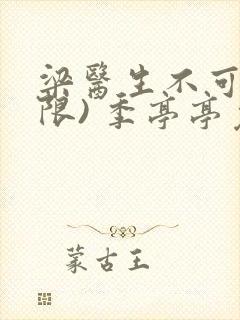 梁醫生不可
限)季亭亭
蒙古王